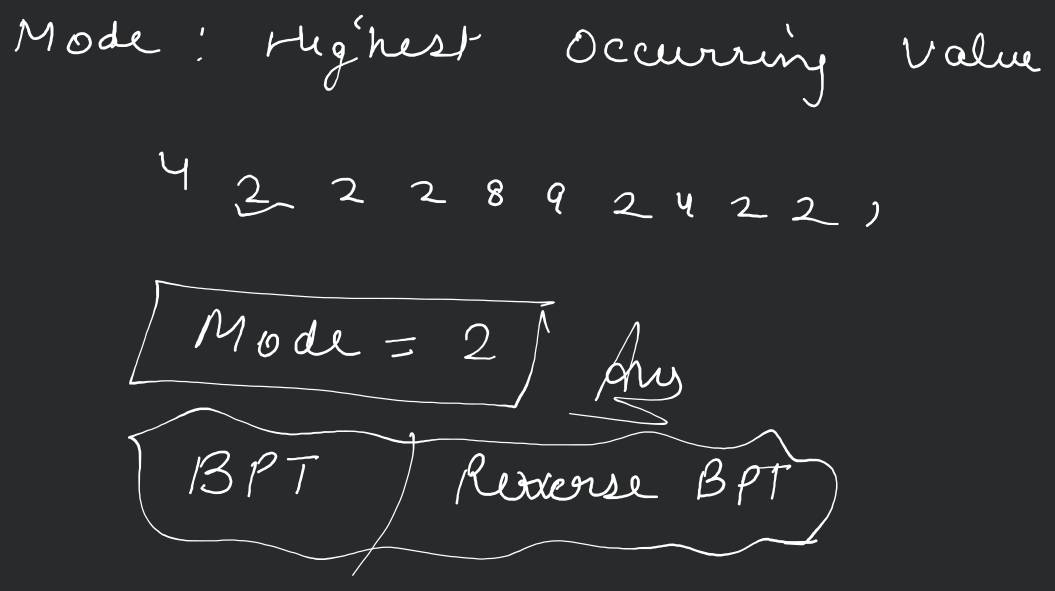 Mode : Highest Occurring Value
4 2 2 2 8 9 2 4 2 2 ,
Mode = 2 Ans
BPT Reverse BPT